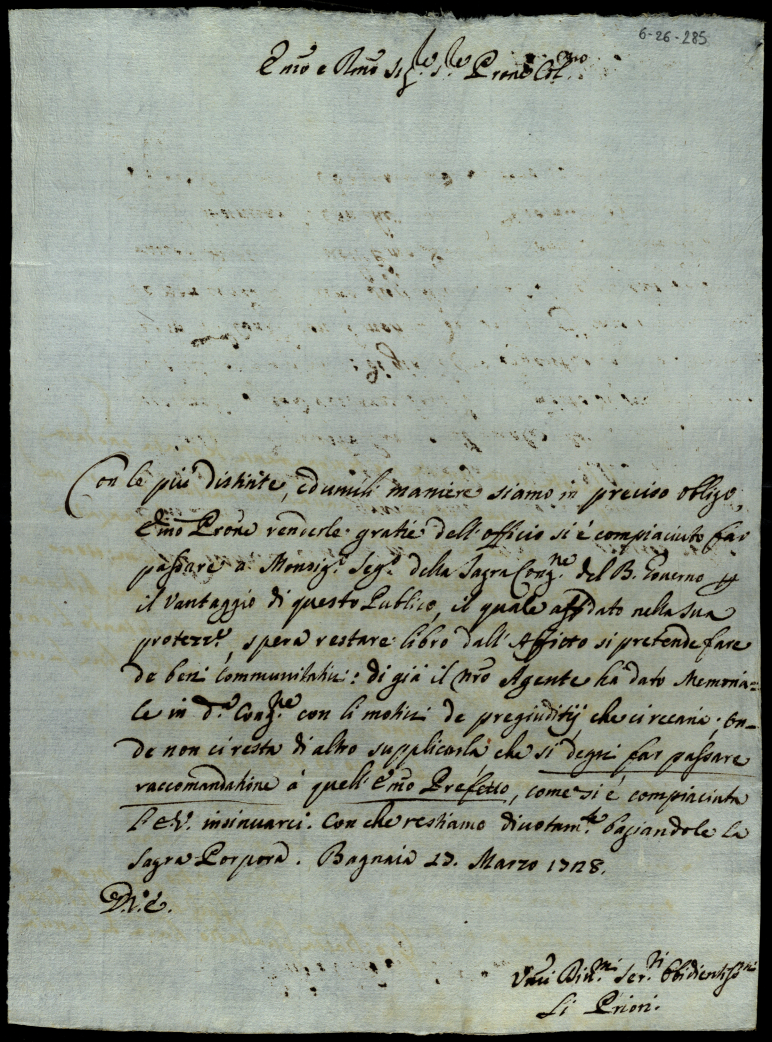 6-26-285
Emo e Rmo Sigre Sre Prone Colmo
Con le più distinte, ed umili maniere siamo in preciso obligo,
Emo Prone renderle gratie dell'officio si è compiaciuto far
passare a Monsigr Segr della Sagra Congne del B. Governo
il Vantaggio di questo Publico, il quale affidato nella sua
protezze, spera restare libro dall'Affitto si pretende fare
de beni Communitativi: di già il nro Agente hà dato Memoria=
le in da Congne con li motivi de pregiuditij che ci recaria; On-
de non ci resta di altro supplicarla, che si degni far passare
raccomandatione à quell'Emo Prefetto, come si è compiaciuta
l'E.V. insinuarci. Con che restiamo divotamte baciandole la
Sagra Porpora. Bagnaia 23. Marzo 1728.
D.V.E.
Umi Divmi Serri Obidientissmi
Li Priori.